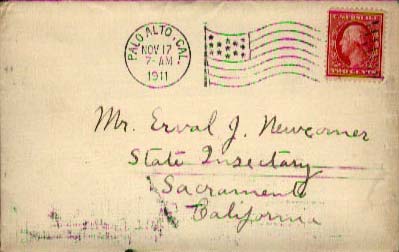 PALO ALTO, CAL.
NOV 17
7-AM
1911
TWO CENTS
Mr. Erval J. Newcomer
State Insectary
Sacramento
California